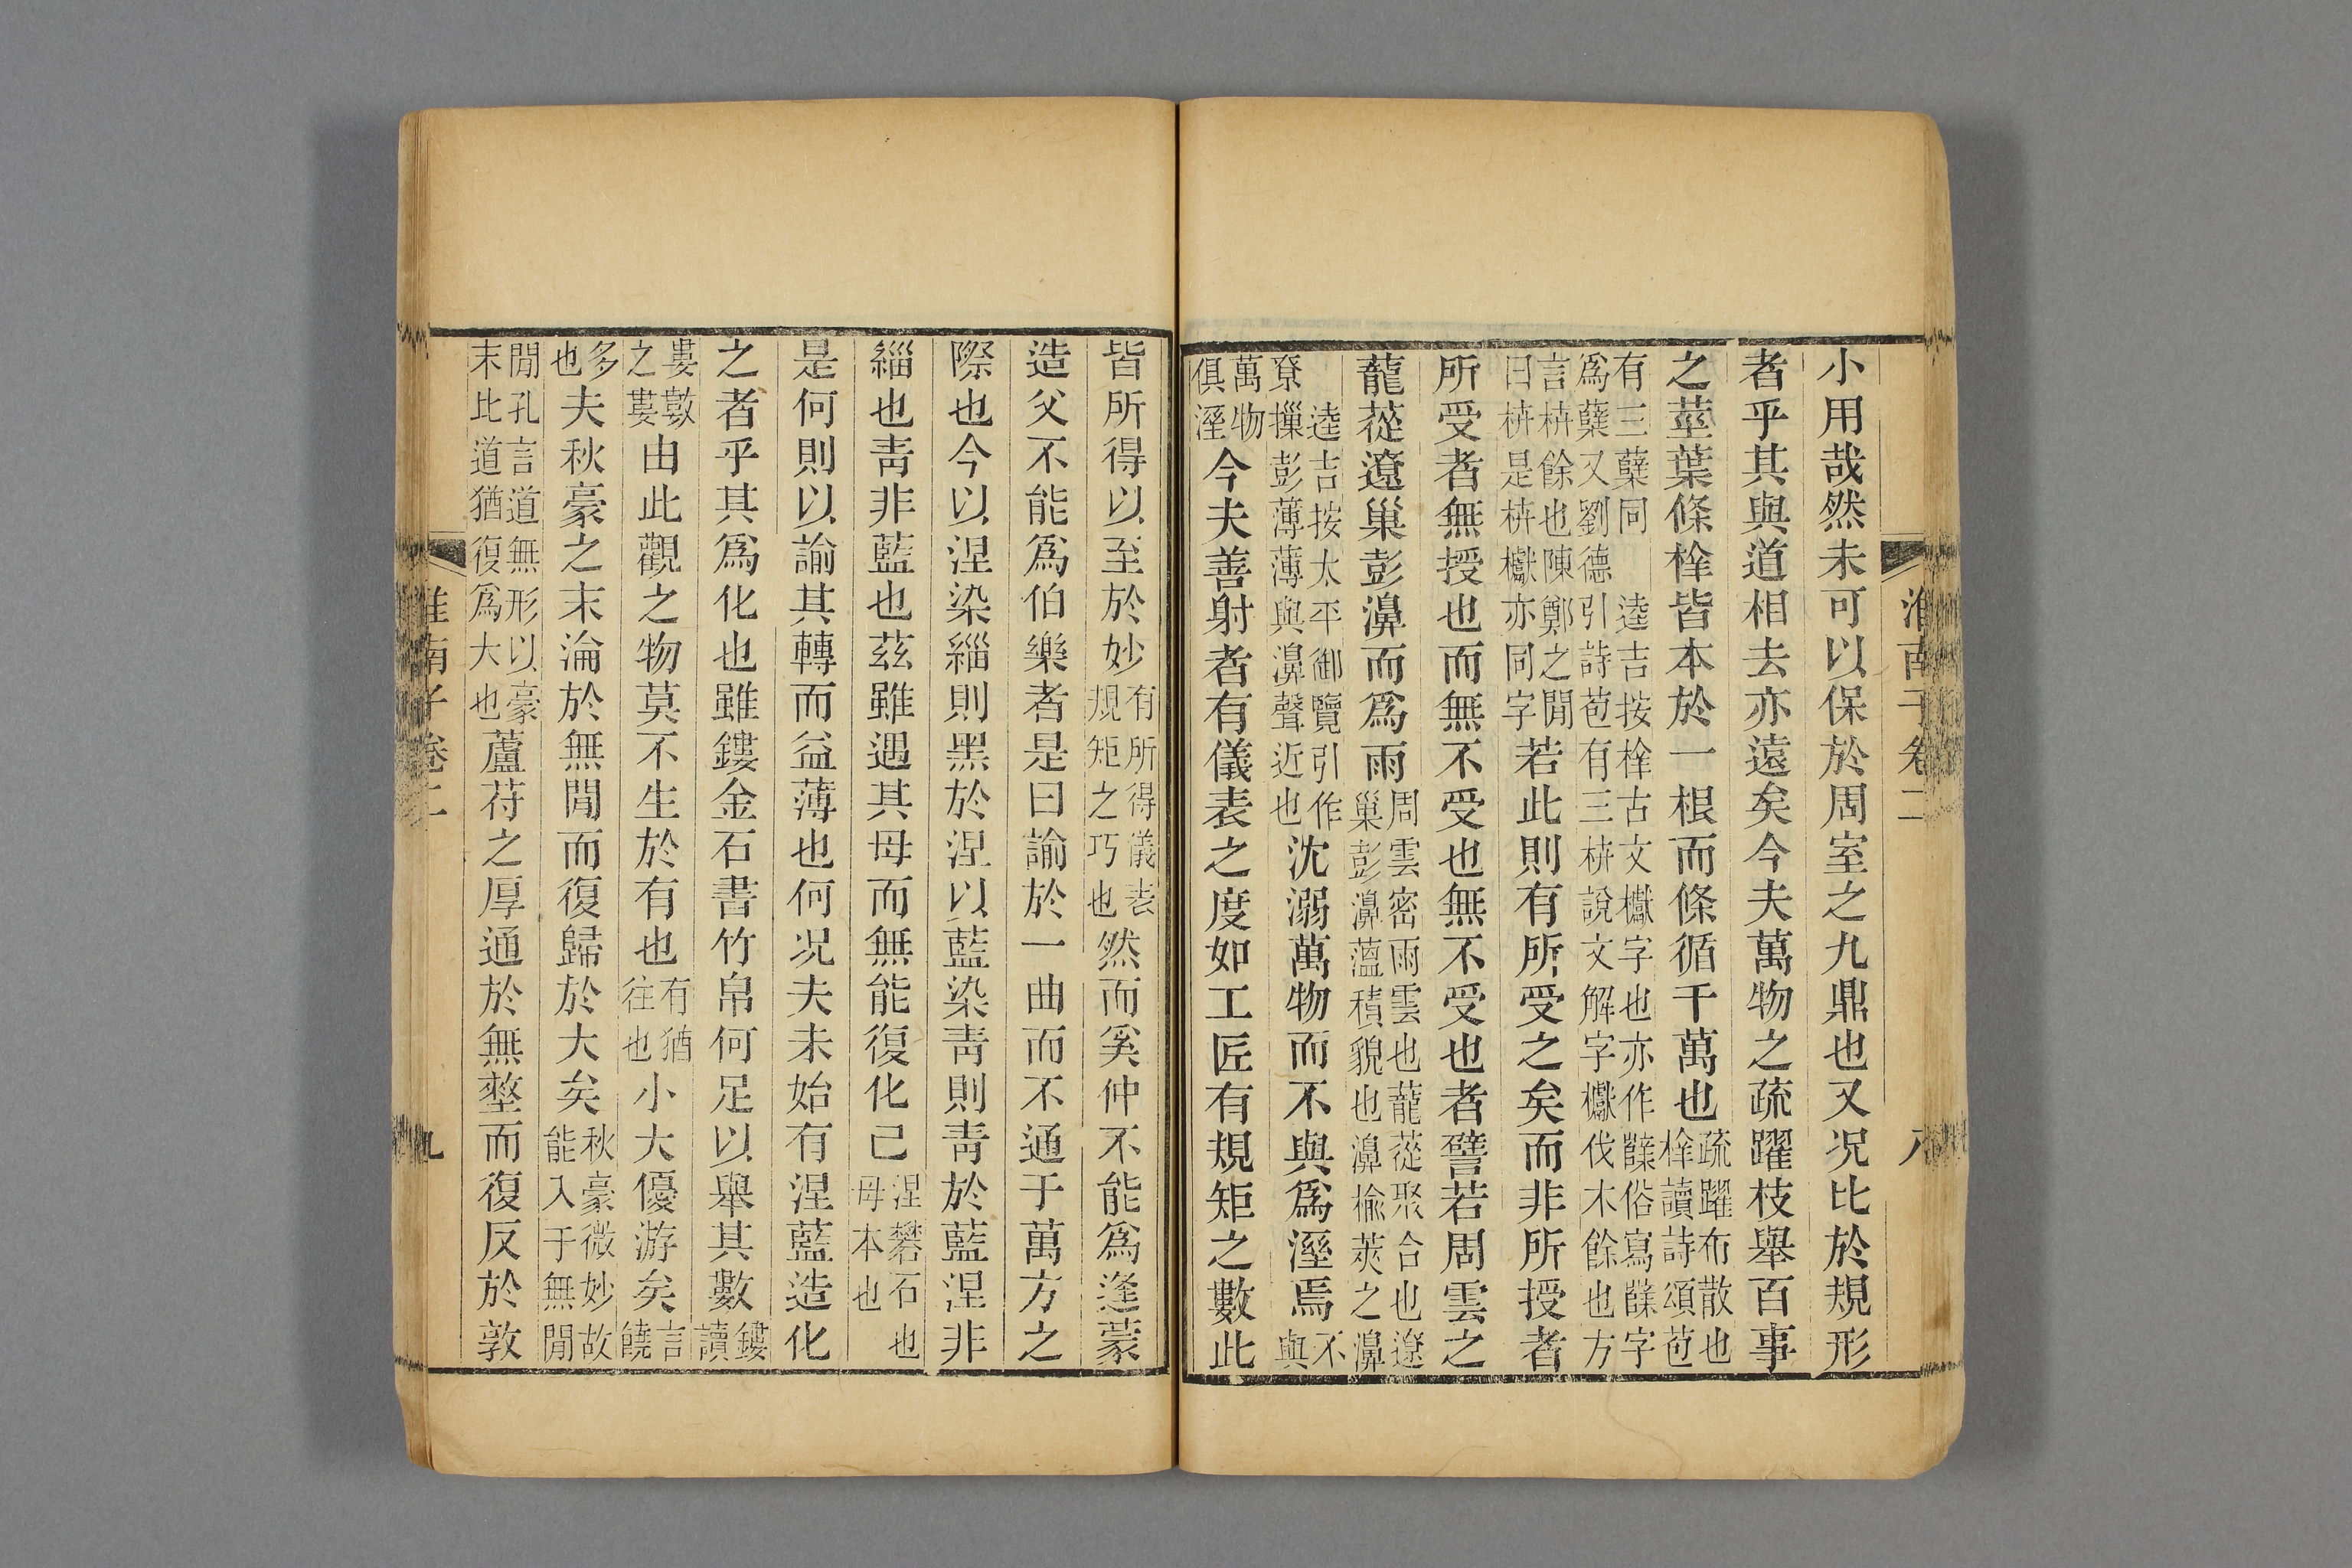 淮南子卷二 八
小用哉然未可以保於周室之九鼎也又況比於規形
者乎其與道相去亦遠矣今夫萬物之疏躍枝舉百事
之莖葉條㭮皆本於一根而條循千萬也疏躍布散也㭮讀詩頌苞
有三蘖同 逵吉按㭮古文𣡌字也亦作櫱俗寫蘖字爲蘖又劉德引詩苞有三枿說文解字𣡌伐木餘也方
言枿餘也陳鄭之閒曰枿是枿𣡌亦同字若此則有所受之矣而非所授者
所受者無授也而無不受也無不受也者譬若周雲之
蘢蓯遼巢彭濞而爲雨周雲密雨雲也蘢蓯聚合也遼巢彭濞蘊積貌也濞楡莢之濞
逵吉按太平御覽引作尞摷彭薄薄與濞聲近也沈溺萬物而不與爲溼焉不與
萬物俱溼今夫善射者有儀表之度如工匠有規矩之數此
皆所得以至於妙有所得儀表規矩之巧也然而奚仲不能爲逢蒙
造父不能爲伯樂者是曰諭於一曲而不通于萬方之
際也今以涅染緇則黑於涅以藍染靑則靑於藍涅非
緇也靑非藍也茲雖遇其母而無能復化己涅礬石也母本也
是何則以諭其轉而益薄也何況夫未始有涅藍造化
之者乎其爲化也雖鏤金石書竹帛何足以舉其數鏤讀
婁數之婁由此觀之物莫不生於有也有猶往也小大優游矣言饒
多也夫秋豪之末淪於無閒而復歸於大矣秋豪微妙故能入于無閒
閒孔言道無形以豪末比道猶復爲大也蘆苻之厚通於無㙬而復反於敦
淮南子卷二 九